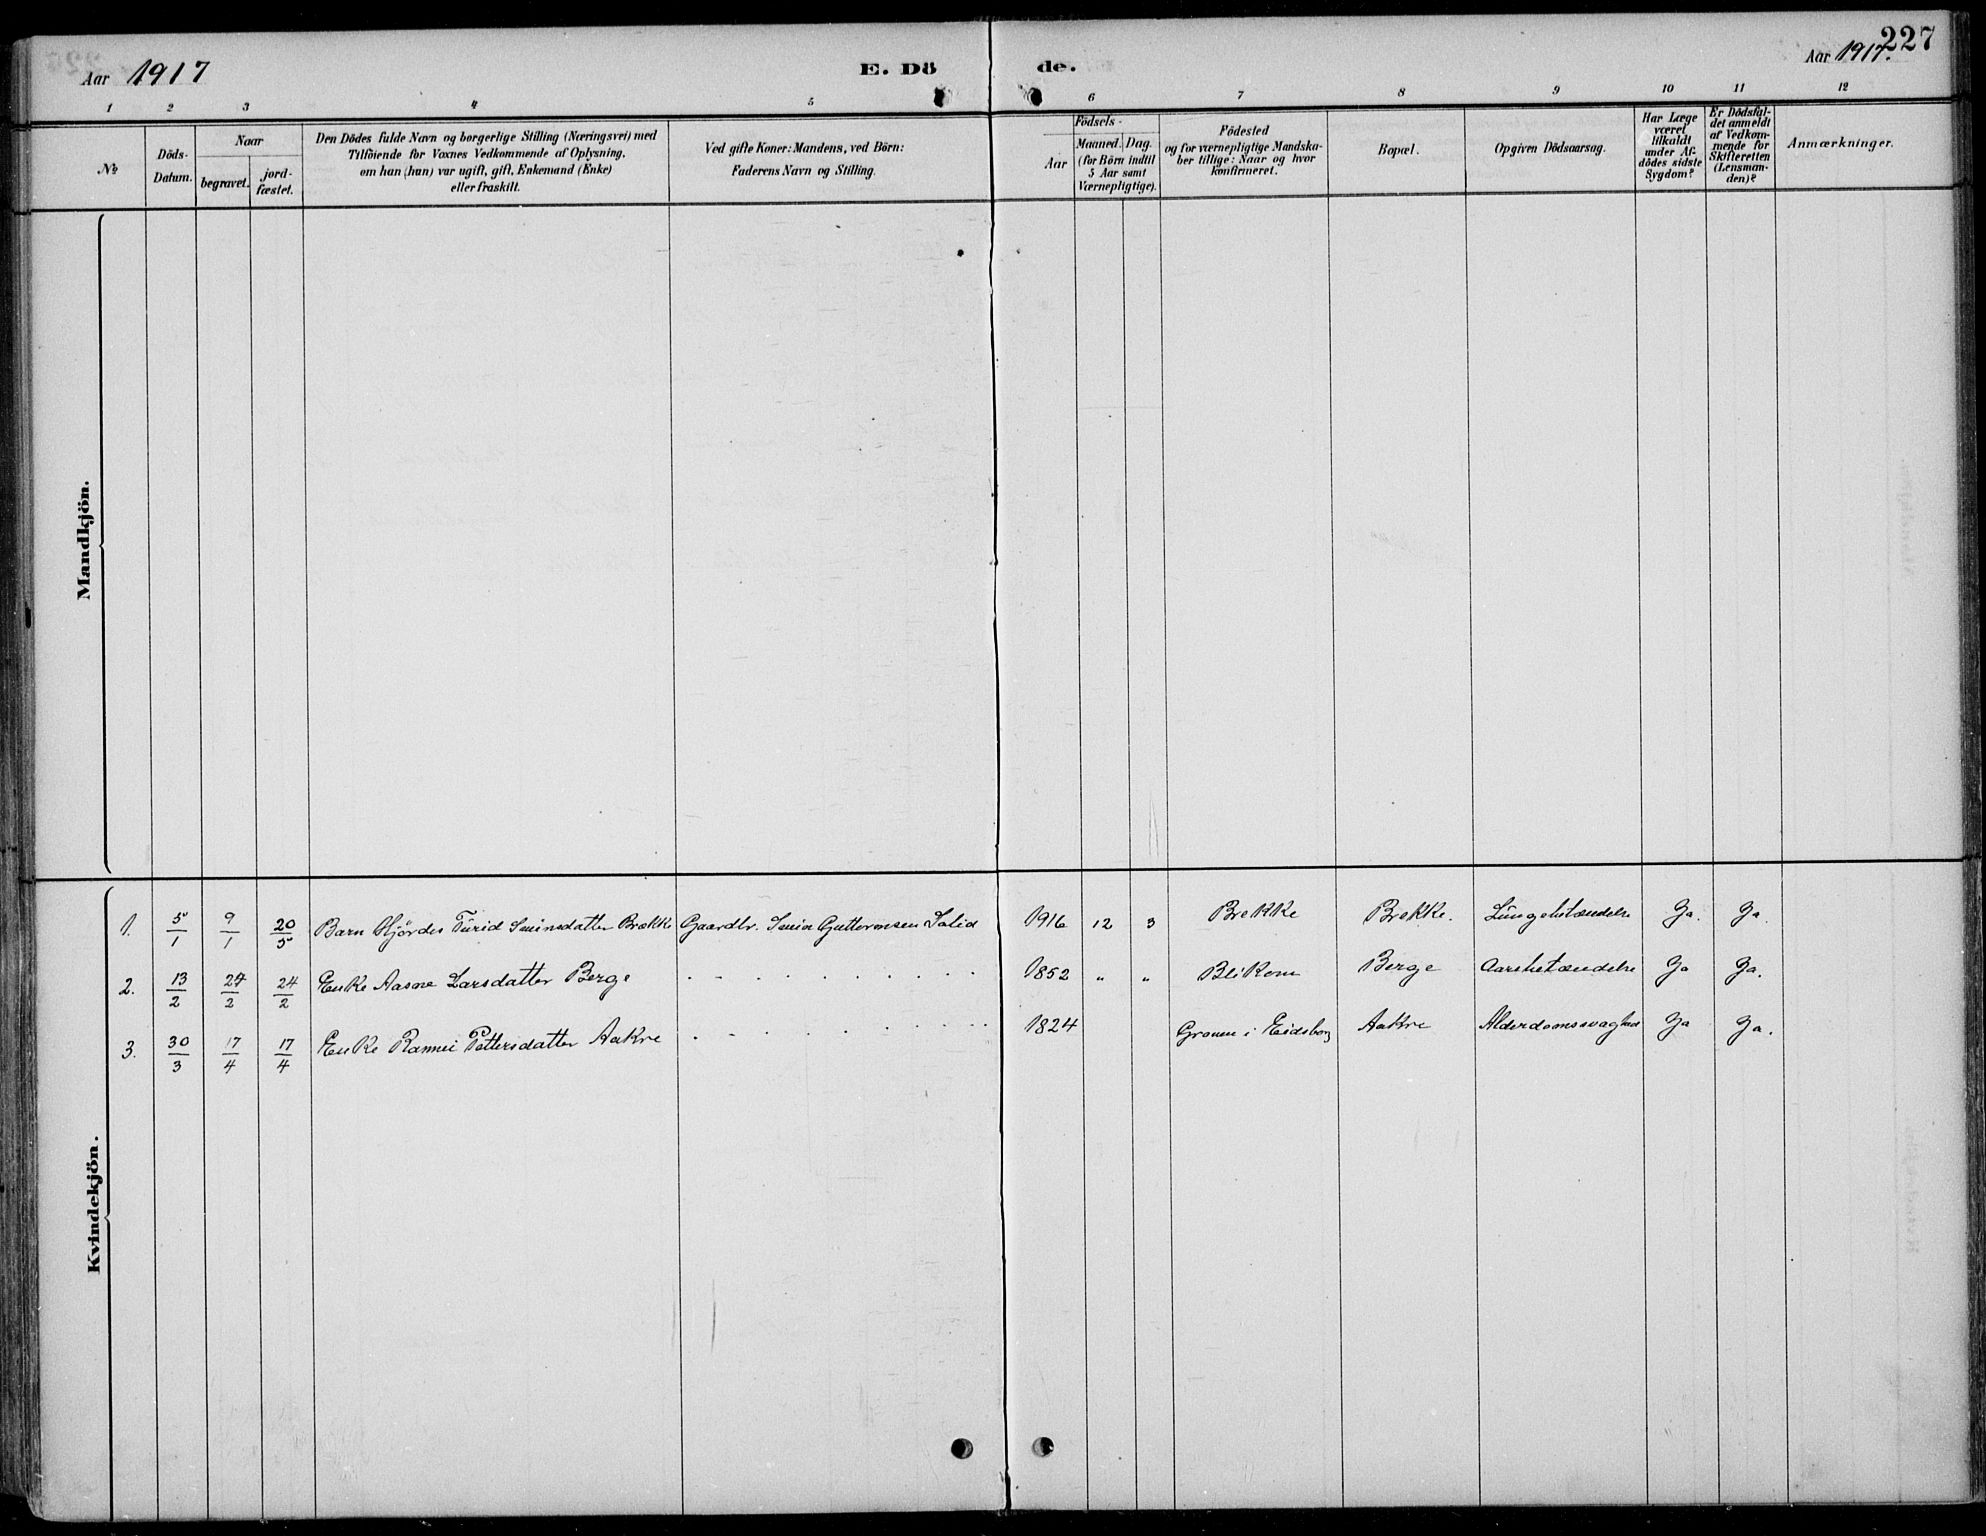 227
Aar 1917
E. Dö
de.
Aar 1917.
1 2 3 4 5 6 7 8 9 10 11 12
№
Döds-
Datum.
Naar
begravet.
jord-
fæstet.
Den Dödes fulde Navn og borgerlige Stilling (Næringsvei) med
Tilföiende for Voxnes Vedkommende af Oplysning,
om han (hun) var ugift, gift, Enkemand (Enke)
eller fraskilt.
Ved gifte Koner: Mandens, ved Börn:
Faderens Navn og Stilling.
Födsels-
Aar
Maaned.
Dag.
(for Börn indtil
5 Aar samt
Værnepligtige).
Födested
og for værnepligtige Mandska-
ber tillige: Naar og hvor
konfirmeret.
Bopæl.
Opgiven Dödsaarsag.
Har Læge
været
tilkaldt
under Af-
dödes sidste
Sygdom?
Er Dödsfal-
det anmeldt
af Vedkom-
mende for
Skifteretten
(Lensman-
den)?
Anmærkninger.
Mandkjön.
Kvindekjön.
1. 5/1 9/1 20/5 Barn Hjördis Turid Sveinsdatter Brække Gaardbr. Guttormsen 1916 12 3 Brekke Brekke. Lungebetændelse Ja. Ja.
2. 13/2 24/2 24/2 Enke Aasne Larsdatter Berge 1852 " " Berge betændelse Ja Ja.
3. 30/3 17/4 17/4 Enke Pettersdatter Aakre 1824 i Eidsborg Aakre Alderdomssvaghed Ja Ja.